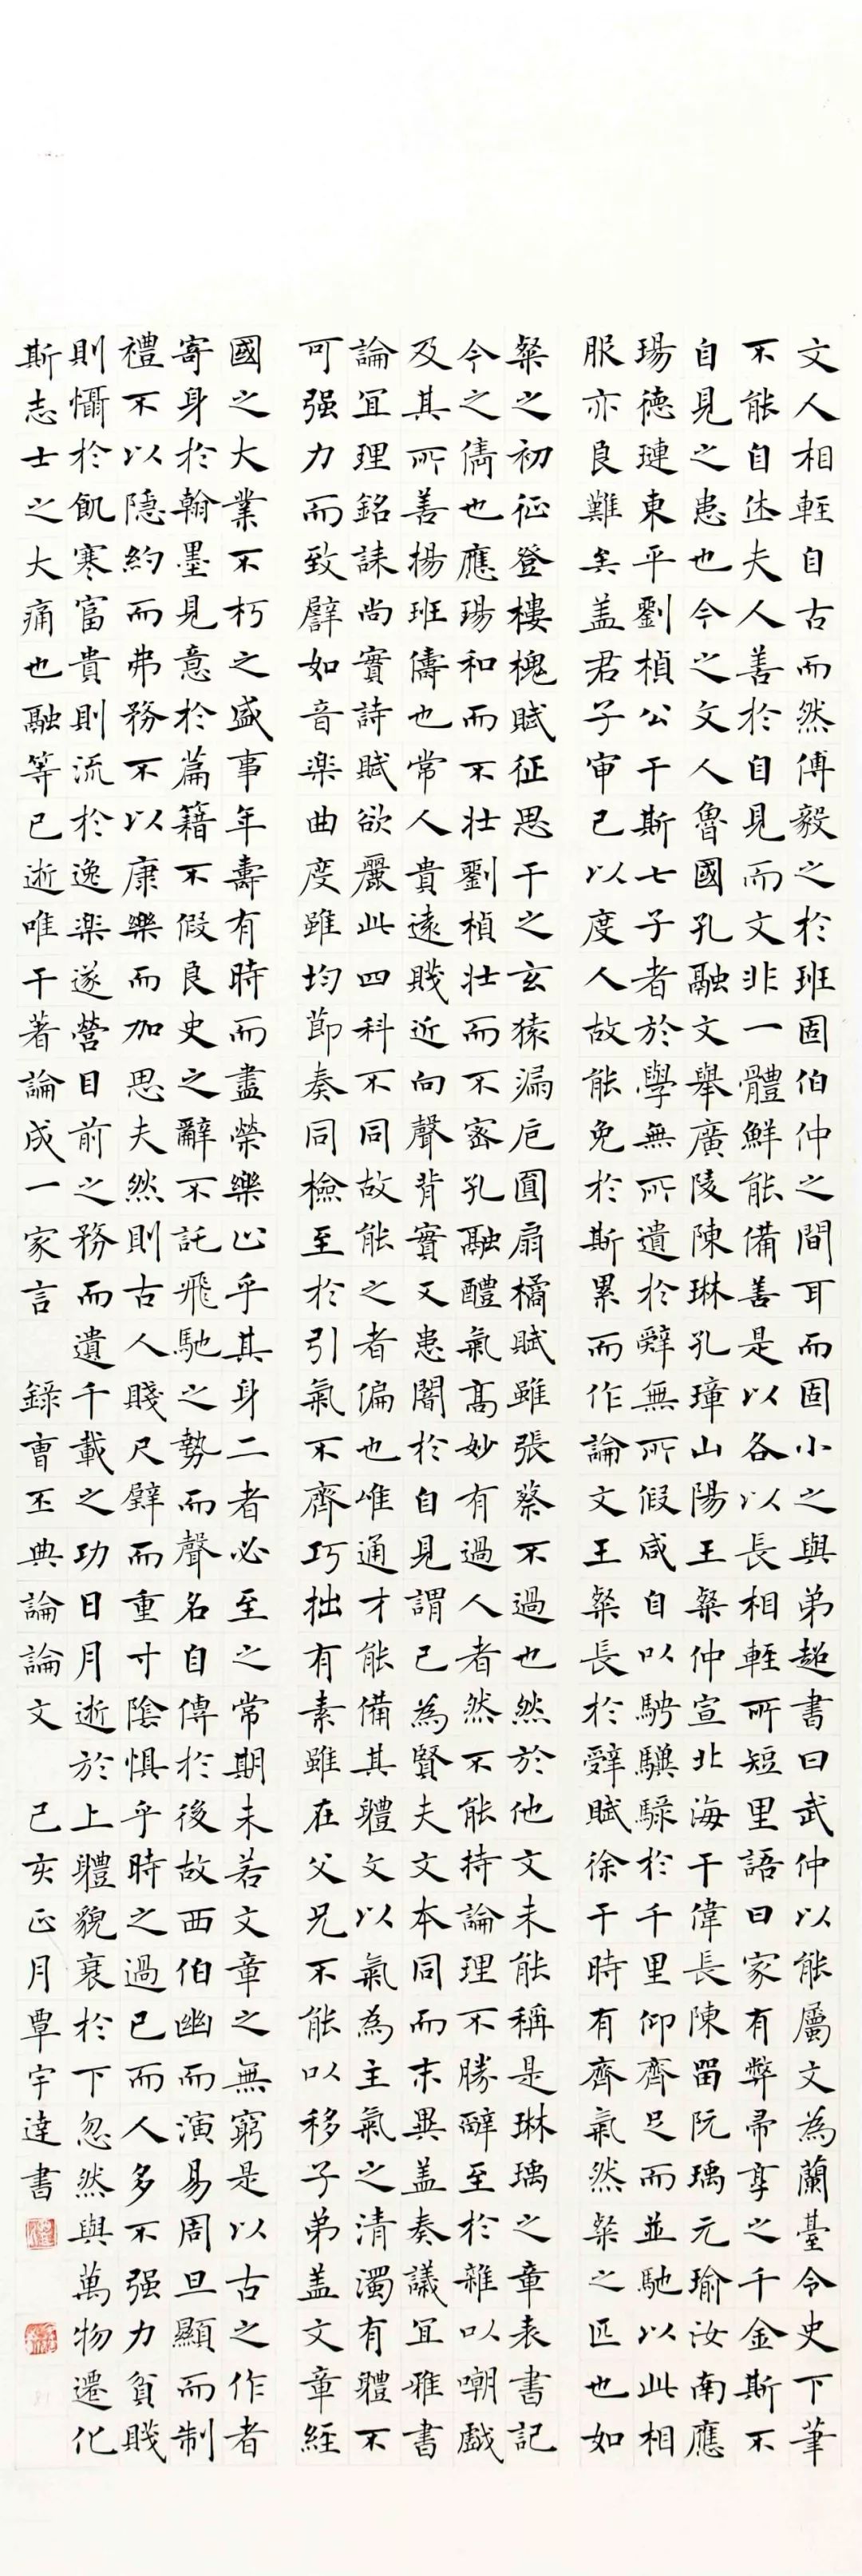 文人相輕自古而然傅毅之於班固伯仲之間耳而固小之與弟超書曰武仲以能屬文為蘭臺令史下筆
不能自休夫人善於自見而文非一體鮮能備善是以各以長相輕所短里語曰家有弊帚享之千金斯不
自見之患也今之文人魯國孔融文舉廣陵陳琳孔璋山陽王粲仲宣北海干偉長陳留阮瑀元瑜汝南應
瑒德璉東平劉楨公干斯七子者於學無所遺於辭無所假咸自以騁驥騄於千里仰齊足而並馳以此相
服亦良難矣盖君子审己以度人故能免於斯累而作論文王粲長於辭賦徐干時有齊氣然粲之匹也如
粲之初征登樓槐賦征思干之玄猿漏卮圓扇橘賦雖張蔡不過也然於他文未能稱是琳瑀之章表書記
今之儁也應瑒和而不壯劉楨壯而不密孔融體氣高妙有過人者然不能持論理不勝辭至於雜以嘲戲
及其所善揚班儔也常人貴遠賤近向聲背實又患闇於自見謂己為賢夫文本同而末異盖奏議宜雅書
論宜理銘誄尚實詩賦欲麗此四科不同故能之者偏也唯通才能備其體文以氣為主氣之清濁有體不
可强力而致譬如音楽曲度雖均節奏同檢至於引氣不齊巧拙有素雖在父兄不能以移子弟盖文章經
國之大業不朽之盛事年壽有時而盡榮樂止乎其身二者必至之常期未若文章之無窮是以古之作者
寄身於翰墨見意於篇籍不假良史之辭不託飛馳之勢而聲名自傳於後故西伯幽而演易周旦顯而制
禮不以隱約而弗務不以康樂而加思夫然則古人賤尺璧而重寸陰惧乎時之過已而人多不强力貧賤
則懾於飢寒富貴則流於逸楽遂營目前之務而遺千載之功日月逝於上體貌衰於下忽然與萬物遷化
斯志士之大痛也融等已逝唯干著論成一家言 錄曹丕典論論文 己亥正月覃宇達書